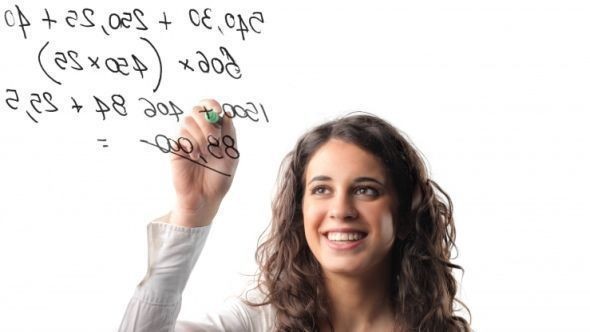 540,30 + 250,25 + 40
606 x (450 x 25)
1500 + 406 84 + 25,5
88,000 =